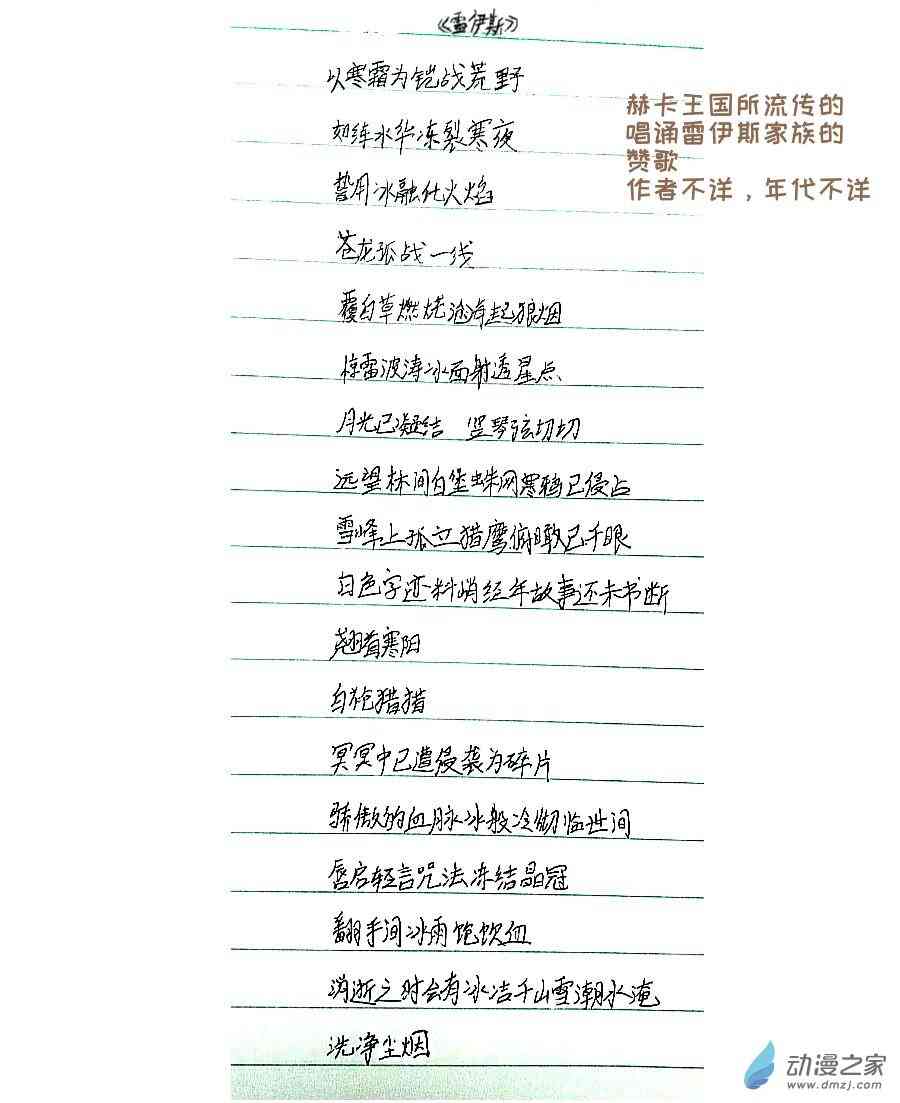 《雷伊斯》
以寒霜为铠战荒野
如练水华冻裂寒夜
誓用冰融化火焰
苍龙孤战一线
覆白草燃烧沧海起狼烟
惊雷波涛冰面射透星点
月光已凝结 竖琴弦切切
远望林间白堡蛛网寒鸦已侵占
雪峰上孤立猎鹰俯瞰已千眼
白色字迹料峭经年故事还未书断
翘首寒阳
白袍猎猎
冥冥中已遭侵袭为碎片
骄傲的血脉冰般冷彻临世间
唇启轻言咒法冻结晶冠
翻手间冰雨饱饮血
消逝之时会有冰洁千山雪潮水淹
洗净尘烟
赫卡王国所流传的
唱诵雷伊斯家族的
赞歌
作者不详，年代不详
动漫之家
www.dmzj.com